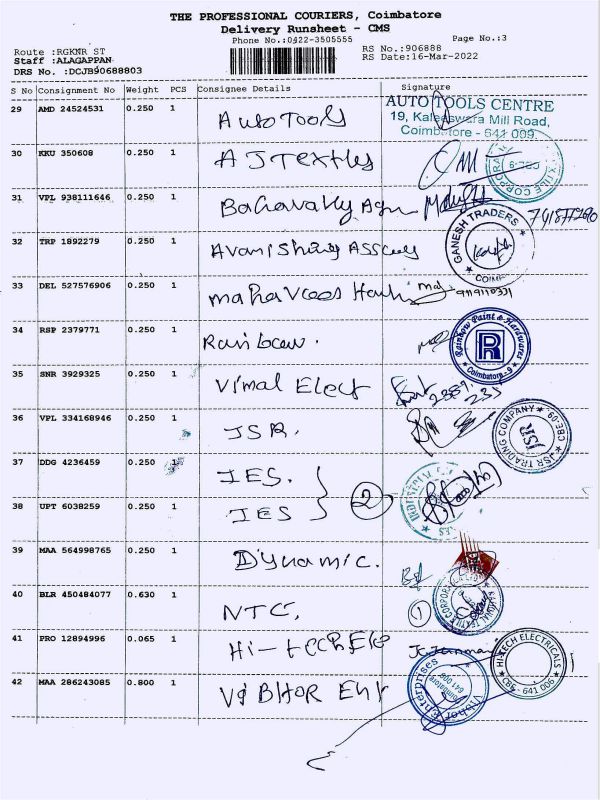 THE PROFESSIONAL COURIERS, Coimbatore
Delivery Runsheet - CMS
Phone No.:0422-3505555 Page No.:3
Route :RGKNR ST RS No.:906888
Staff :ALAGAPPAN RS Date:16-Mar-2022
DRS No. :DCJB90688803
S No Consignment No Weight PCS Consignee Details Signature
29 AMD 24524531 0.250 1 Auto Tools AUTO TOOLS CENTRE
19, Kaleeswara Mill Road,
Coimbatore - 641 009.
30 KKU 350608 0.250 1 A J Textiles
31 VPL 938111646 0.250 1
32 TRP 1892279 0.250 1 GANESH TRADERS
33 DEL 527576906 0.250 1
34 RSP 2379771 0.250 1 Rainbow. Rainbow Paint & Hardwares R Coimbatore-9
35 SNR 3929325 0.250 1 Vimal Elect
36 VPL 334168946 0.250 1 JSR. JSR TRADING COMPANY CBE-09 JSR
37 DDG 4236459 0.250 1 IES.
2
38 UPT 6038259 0.250 1 IES
39 MAA 564998765 0.250 1 Dynamic.
40 BLR 450484077 0.630 1 NTC. 1
41 PRO 12894996 0.065 1 Hi-tech Ele HI-TECH ELECTRICALS CBE - 641 006
42 MAA 286243085 0.800 1 VIBHOR Ent Vibhor Enterprises Coimbatore